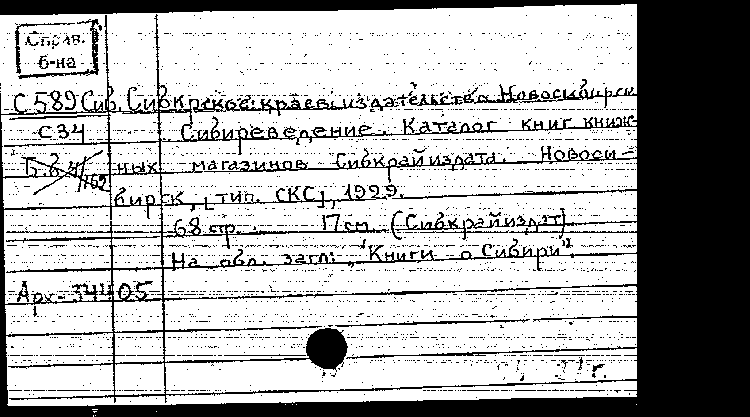 Справ.
б-на
С589 Сиб. Сибирское краев. издательство Новосибирск
С34 Сибиреведение. Каталог книг книж-
ных магазинов Сибкрайиздата. Новоси-
бирск, [тип. СКС], 1929.
68 стр. 17 см. (Сибкрайиздат)
На обл. загл: "Книги о Сибири".
Арх-34405